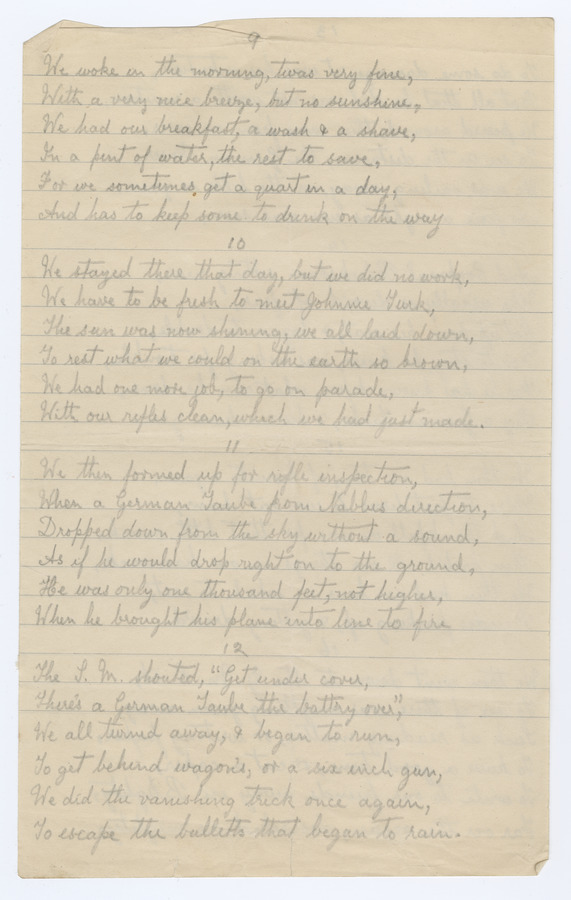 9
We woke in the morning, twas very fine,
With a very nice breeze, but no sunshine,
We had our breakfast, a wash & a shave,
In a pint of water, the rest to save,
For we sometimes get a quart in a day,
And has to keep some to drink on the way
10
We stayed there that day, but we did no work,
We have to be fresh to meet Johnnie Turk,
The sun was now shining, we all laid down,
To rest what we could on the earth so brown,
We had one more job, to go on parade,
With our rifles clean, which we had just made.
11
We then formed up for rifle inspection,
When a German Taube from Nablus direction,
Dropped down from the sky without a sound,
As if he would drop right on to the ground,
He was only one thousand feet, not higher,
When he brought his plane into line to fire
12
The S. M. shouted, "Get under cover,
There's a German Taube the battry over",
We all turned away, & began to run,
To get behind wagon's, or a six inch gun,
We did the vanishing trick once again,
To escape the bulletts that began to rain.